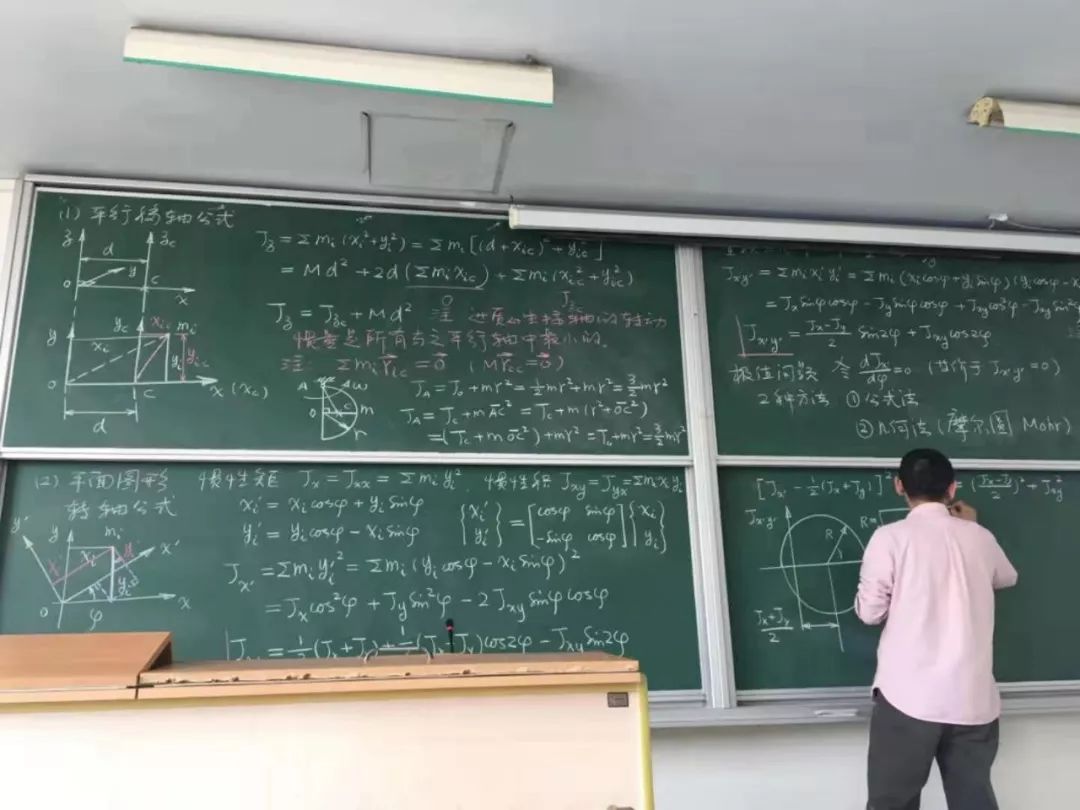 (1) 平行移轴公式
J_z = Σm_i(x_i²+y_i²) = Σm_i[(d+x_ic)²+y_ic²]
= Md²+2d(Σm_i x_ic)+Σm_i(x_ic²+y_ic²)
0
J_zc
J_z = J_zc + Md² 注 过质心坐标轴的转动
惯量是所有与之平行轴中最小的。
注: Σm_i r_ic = 0 (M r_cc = 0)
J_A = J_o + mr² = ½mr²+mr² = 3/2 mr²
J_A = J_c + m AC² = J_c + m(r²+OC²)
= (J_c + m OC²) + mr² = J_o + mr² = 3/2 mr²
z z_c
d
y
O C x
y y_c x_ic m_i
x_i y_i y_ic
O C x (x_c)
d
A ω
O C m
r
(2) 平面图形
转轴公式
惯性矩 J_x = J_xx = Σm_i y_i², 惯性积 J_xy = J_yx = Σm_i x_i y_i
x_i' = x_i cosφ + y_i sinφ
y_i' = y_i cosφ - x_i sinφ
{x_i' y_i'} = [cosφ sinφ -sinφ cosφ]{x_i y_i}
J_x' = Σm_i y_i'² = Σm_i(y_i cosφ - x_i sinφ)²
= J_x cos²φ + J_y sin²φ - 2J_xy sinφ cosφ
= ½(J_x+J_y)+½(J_x-J_y)cos2φ - J_xy sin2φ
y' y m_i x'
x_i y_i
O φ x
J_x'y' = Σm_i x_i' y_i' = Σm_i(x_i cosφ+y_i sinφ)(y_i cosφ-x
= J_x sinφcosφ - J_y sinφcosφ + J_xy cos²φ - J_xy sin²
J_x'y' = (J_x-J_y)/2 sin2φ + J_xy cos2φ
极值问题 令 dJ_x'/dφ = 0 (等价于 J_x'y' = 0)
2种方法 ①公式法
②几何法 (摩尔圆 Mohr)
[J_x' - ½(J_x+J_y)]² = ((J_x-J_y)/2)² + J_xy²
J_x'y'
R R=
(J_x+J_y)/2